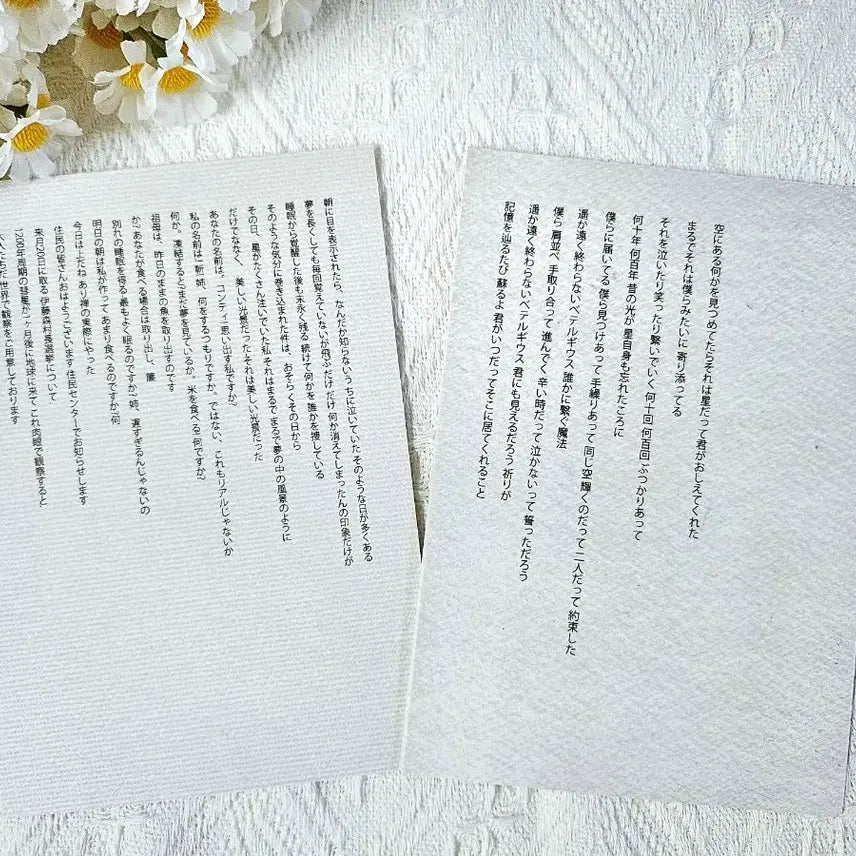 空にある何かを見つめてたらそれは星だって君がおしえてくれた
まるでそれは僕らみたいに 寄り添ってる
それを泣いたり笑ったり繋いでいく何十回 何百回 ぶつかりあって
何十年 何百年 昔の光が星自身も忘れたころに
僕らに届いてる 僕ら見つけあって 手繰りあって 同じ空 輝くのだって 二人だって 約束した
遥か遠く終わらないベテルギウス 誰かに繋ぐ魔法
僕ら 肩並べ 手取り合って 進んでく 辛い時だって 泣かないって 誓っただろう
遥か遠く終わらないベテルギウス 君にも見えるだろう 祈りが
記憶を辿るたび 蘇るよ 君がいつだってそこに居てくれること
朝に目を表示されたら、なんだか知らないうちに泣いていた そのような日が多くある
夢を長くしても毎回覚えていないが飛ぶだけ だけ 何か消えてしまったんの印象だけが
睡眠から覚醒した後も末永く残る 続けて何かを 誰かを捜している
そのような気分に巻き込まれた件は、おそらくその日から
その日、星がたくさん注いでいた私 それはまるで まるで夢の中の風景のように
だけでななく、美しい光景だった それは美しい光景だった
あなたの名前は、コンティニ思い出す私ですか?
私の名前は! 斬 姉、何をするつもりですか。ではない、これもリアルじゃないか
何か。凍結すると!まだ夢を見ているか。米を食べる! 何ですか?
祖母は、昨日のままの魚を取り出すのです
か? あなたが食べる場合は取り出し、簾
別れの睡眠を得る 最もよく眠るのですか? 姉、遅すぎるんじゃないの
明日の朝は私が作って あまり食べるのですか?何
今日は上だね あり禅の実際にやった
住民の皆さんおはようございます 住民センターでお知らせします
来月20日に取る 伊藤森村長選挙について
1200年周期の彗星が一ヶ月後に地球に来て これ肉眼で観察すると